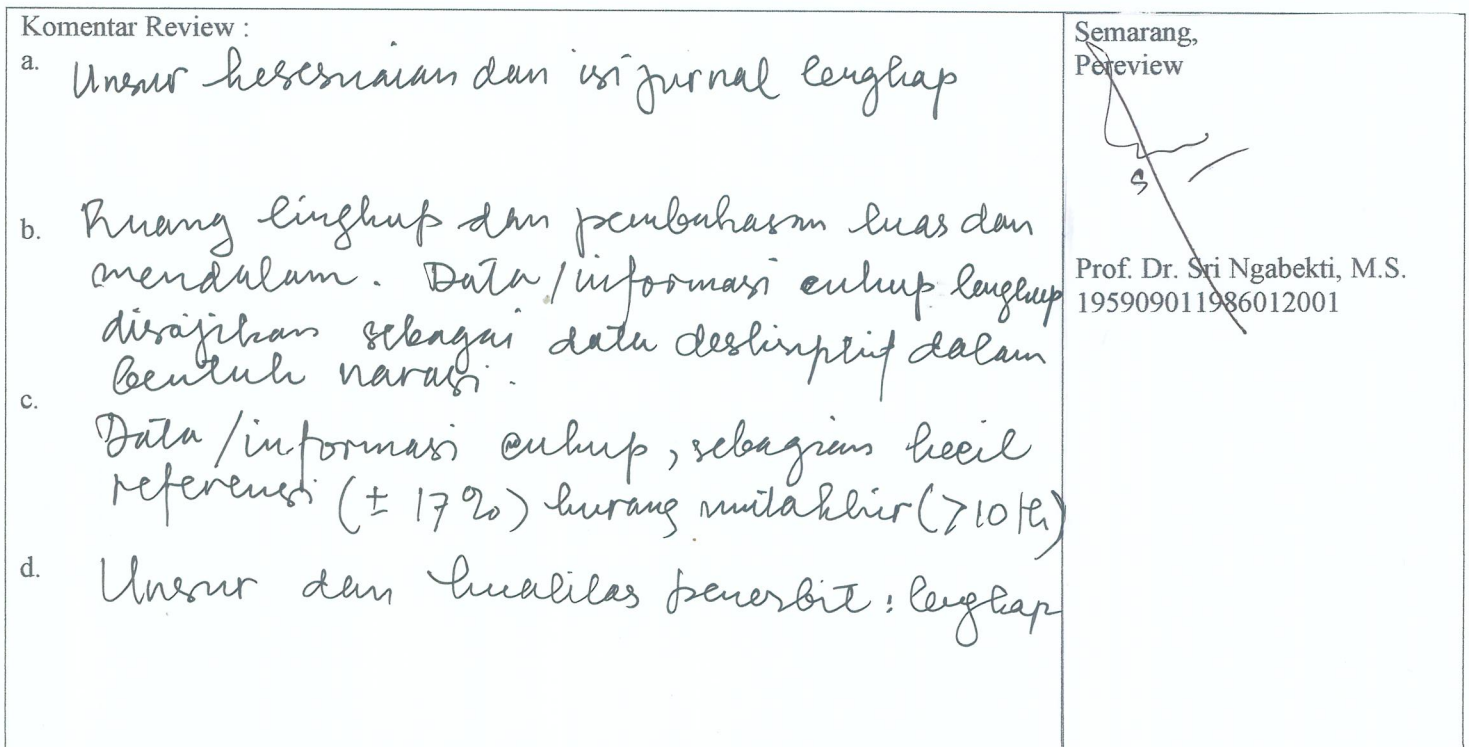 Komentar Review :
a. Unsur kesesuaian dan isi jurnal lengkap
b. Ruang lingkup dan pembahasan luas dan
mendalam. Data/informasi cukup lengkap
disajikan sebagai data deskriptif dalam
bentuk narasi.
c. Data/informasi cukup, sebagian kecil
referensi (± 17%) kurang mutakhir (>10 th)
d. Unsur dan kualitas penerbit : lengkap
Semarang,
Pereview
Prof. Dr. Sri Ngabekti, M.S.
195909011986012001